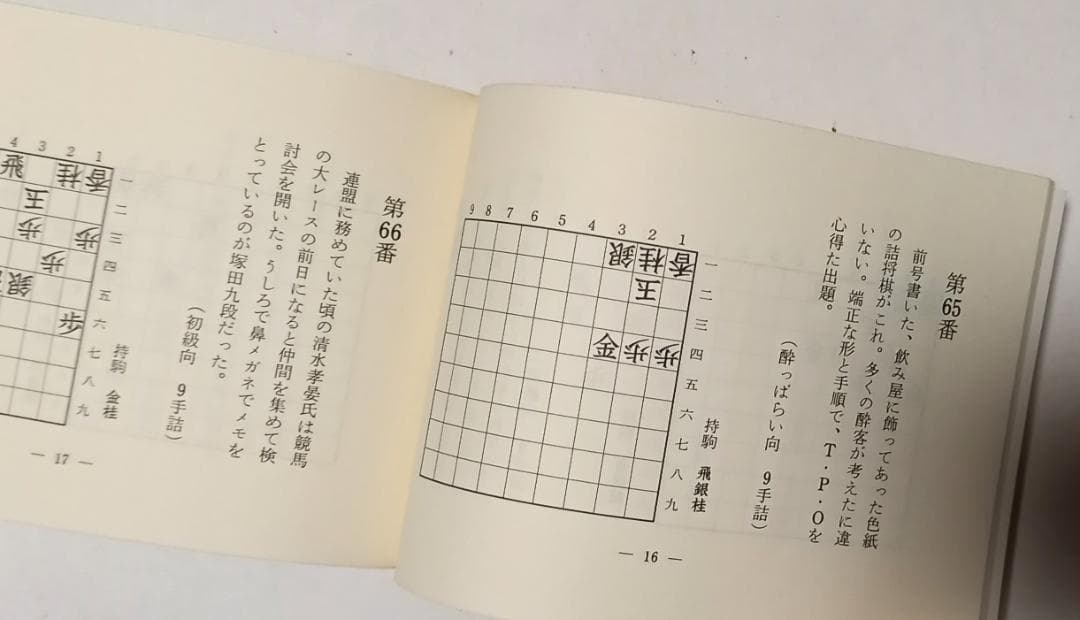 第65番
前号書いた、飲み屋に飾ってあった色紙
の詰将棋がこれ。多くの酔客が考えたに違
いない。端正な形と手順で、T・P・Oを
心得た出題。
（酔っぱらい向　9手詰）
9 8 7 6 5 4 3 2 1
銀 桂 香
玉
金 歩 歩
一
二
三
四
五
六
七
八
九
持駒　飛銀桂
— 16 —
第66番
連盟に務めていた頃の清水孝晏氏は競馬
の大レースの前日になると仲間を集めて検
討会を開いた。うしろで鼻メガネでメモを
とっているのが塚田九段だった。
（初級向　9手詰）
4 3 2 1
飛 桂 香
玉
歩 歩
歩
銀
歩
一
二
三
四
五
六
七
八
九
持駒　金桂
— 17 —